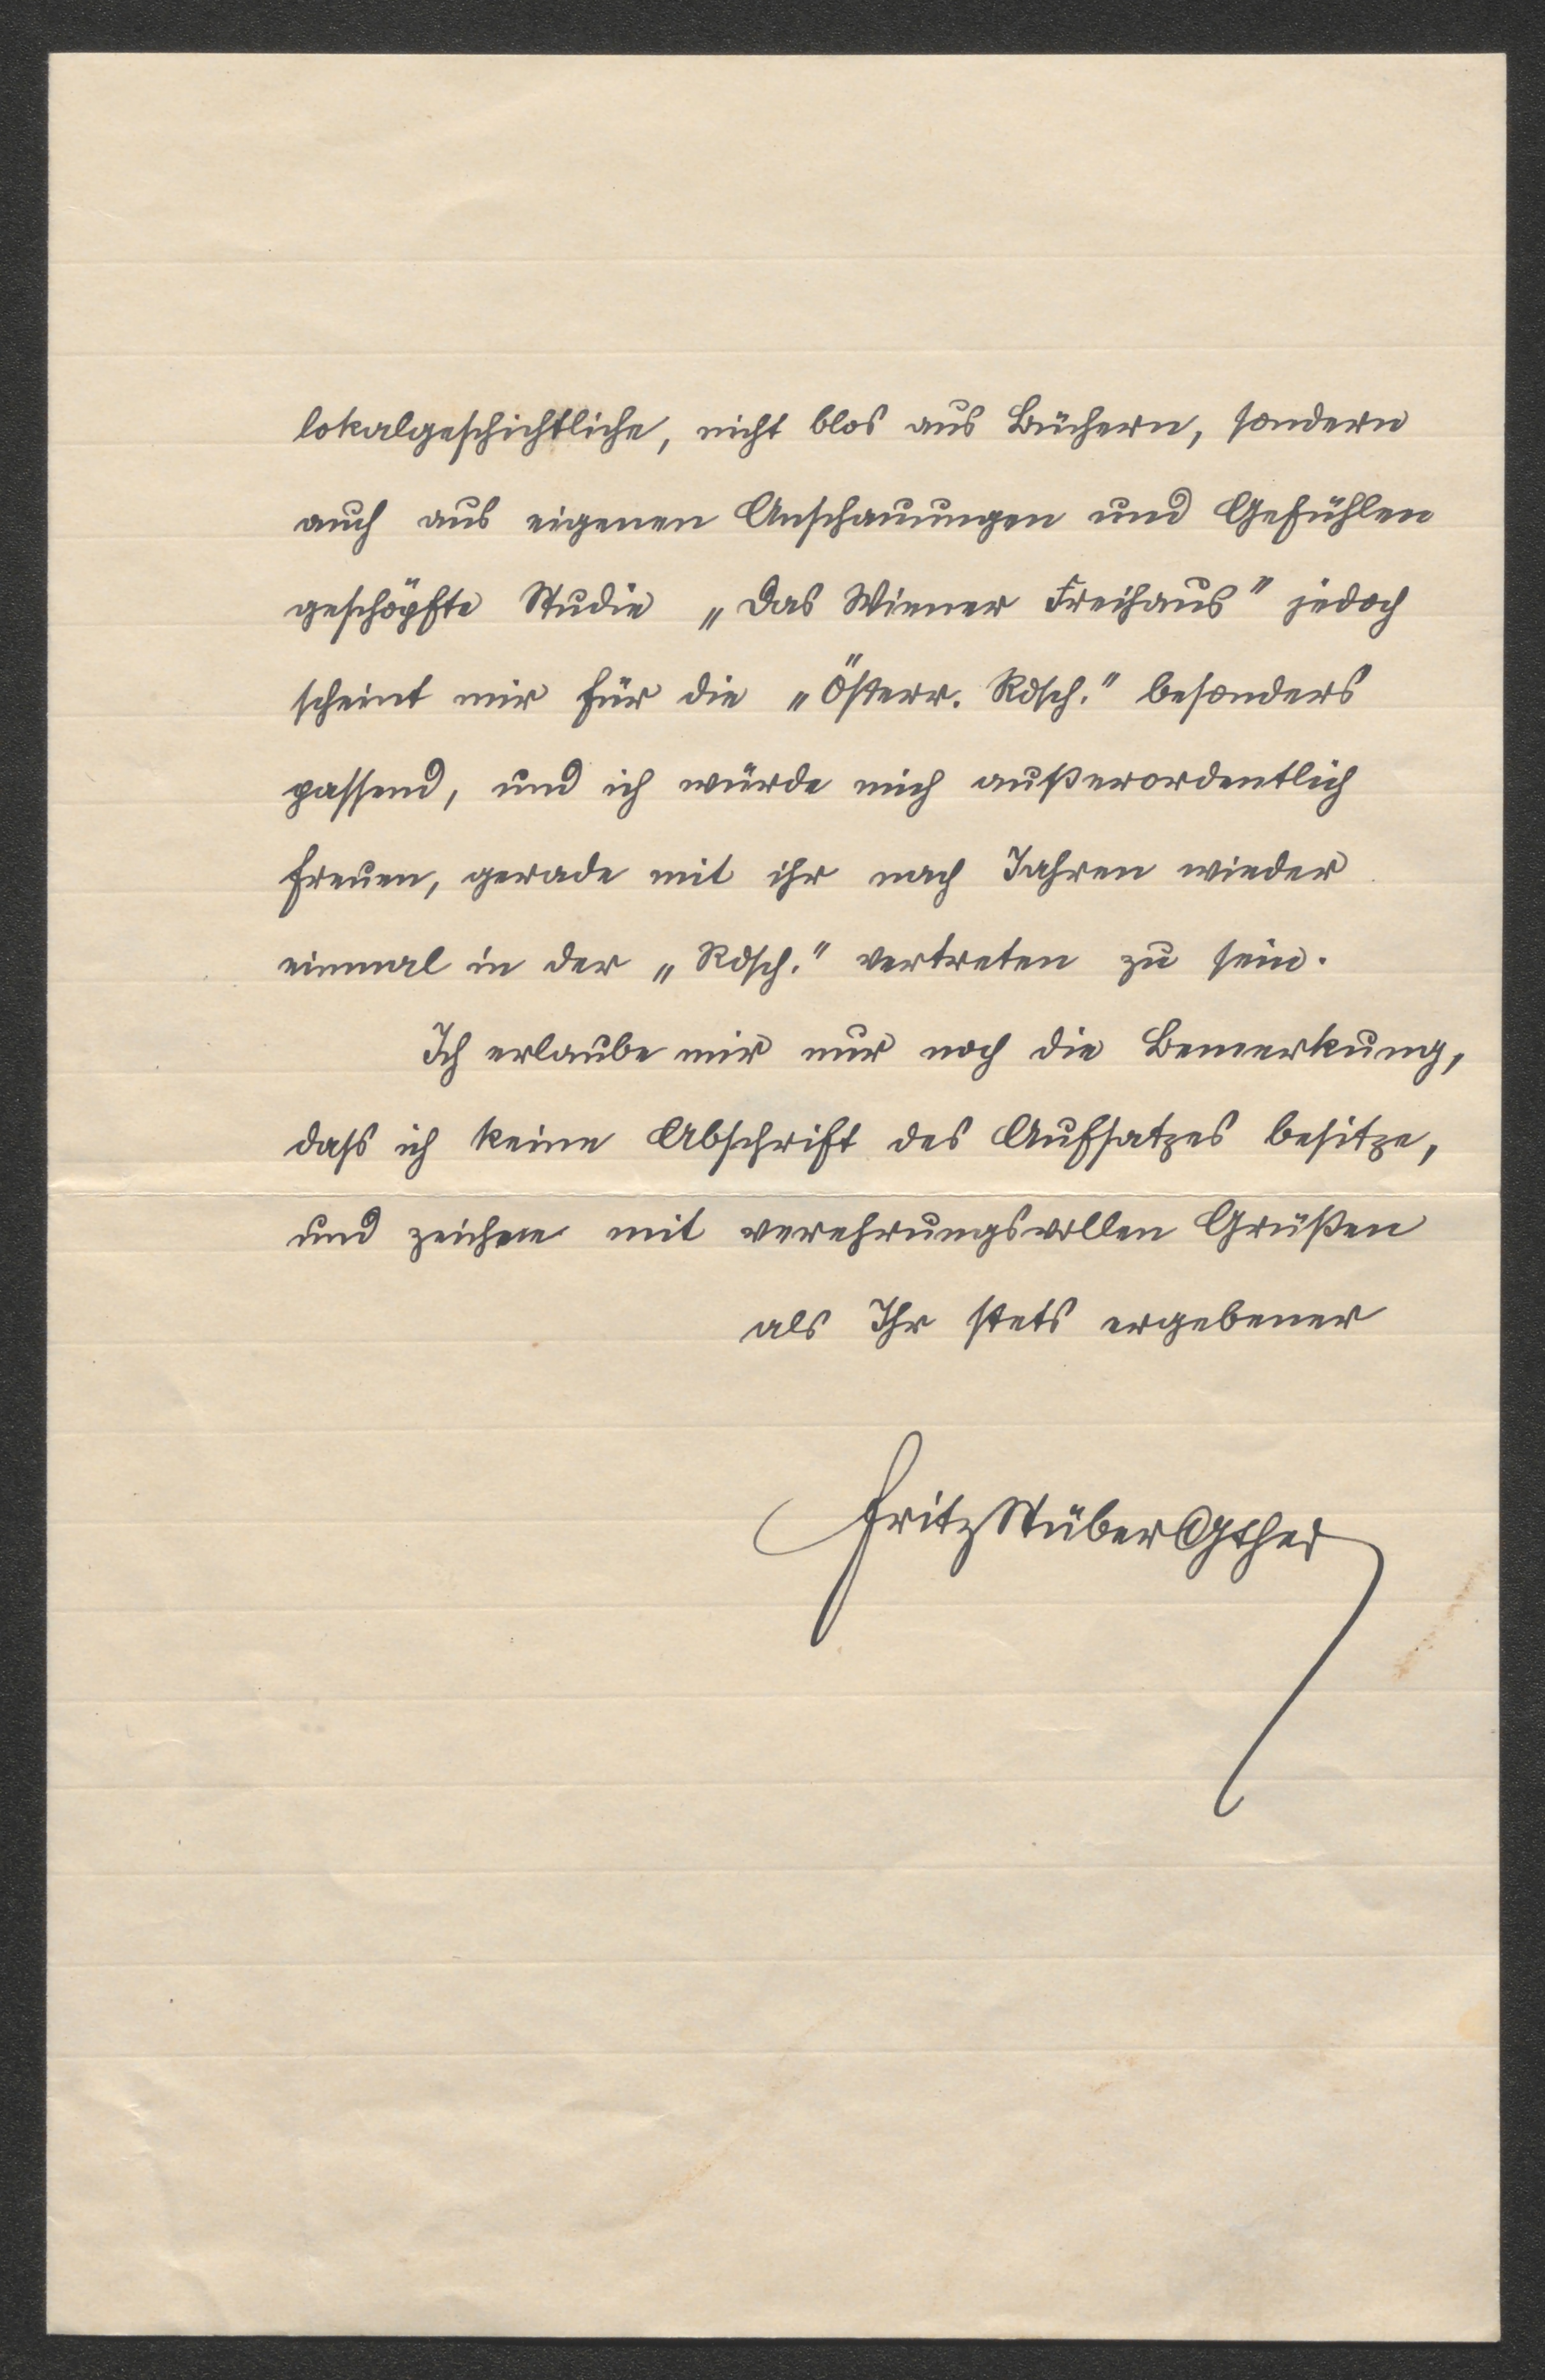 lokalgeschichtliche, nicht blos aus Büchern, sondern
auch aus eigenen Anschauungen und Gefühlen
geschöpfte Studie „Das Wiener Freihaus" jedoch
scheint mir für die „Österr. Rdsch." besonders
passend, und ich würde mich außerordentlich
freuen, gerade mit ihr nach Jahren wieder
einmal in der „Rdsch." vertreten zu sein.
Ich erlaube mir nur noch die Bemerkung,
dass ich keine Abschrift des Aufsatzes besitze,
und zeichne mit verehrungsvollen Grüßen
als Ihr stets ergebener
Fritz Stüber Gther